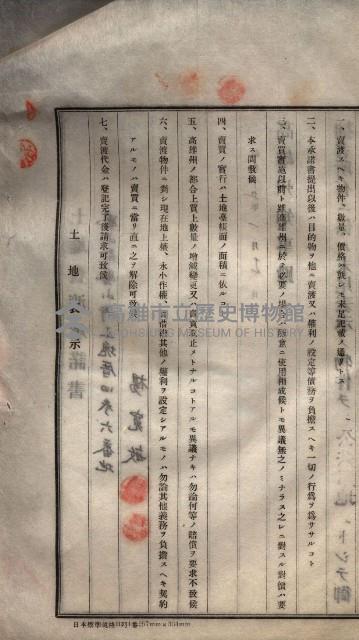 一、賣渡スヘキ物件、數量、價格ハ總シテ末尾記載ノ通リトス
二、本承諾書提出以後ハ目的物ヲ他ニ賣渡又ハ權利ノ設定等債務ヲ負擔スヘキ一切ノ行爲ヲ爲ササルコト
三、賣買實施以前ト雖高雄州ニ於テ必要ノ場合ハ隨意ニ使用相成候トモ異議無之ノミナラス之レニ對スル對價ハ要
求ス間敷儀
四、賣買ノ實行ハ土地臺帳面ノ面積ニ依ルコト
五、高雄州ノ都合上買上數量ノ增減變更又ハ賣買取止メトナルコトアルモ異議ナキハ勿論何等ノ賠償ヲ要求不致候
六、賣渡物件ニ對シ現在地上權、永小作權、賃借權其他ノ權利ヲ設定シアルモノハ勿論其他義務ヲ負擔スヘキ契約
アルモノハ賣買ニ當リ直ニ之ヲ解除可致候
七、賣渡代金ハ登記完了後請求可致候
土地 表示
番地
楊寬敏
高雄市立歷史博物館
KAOHSIUNG MUSEUM OF HISTORY
日本標準規格B列4番257mm×364mm